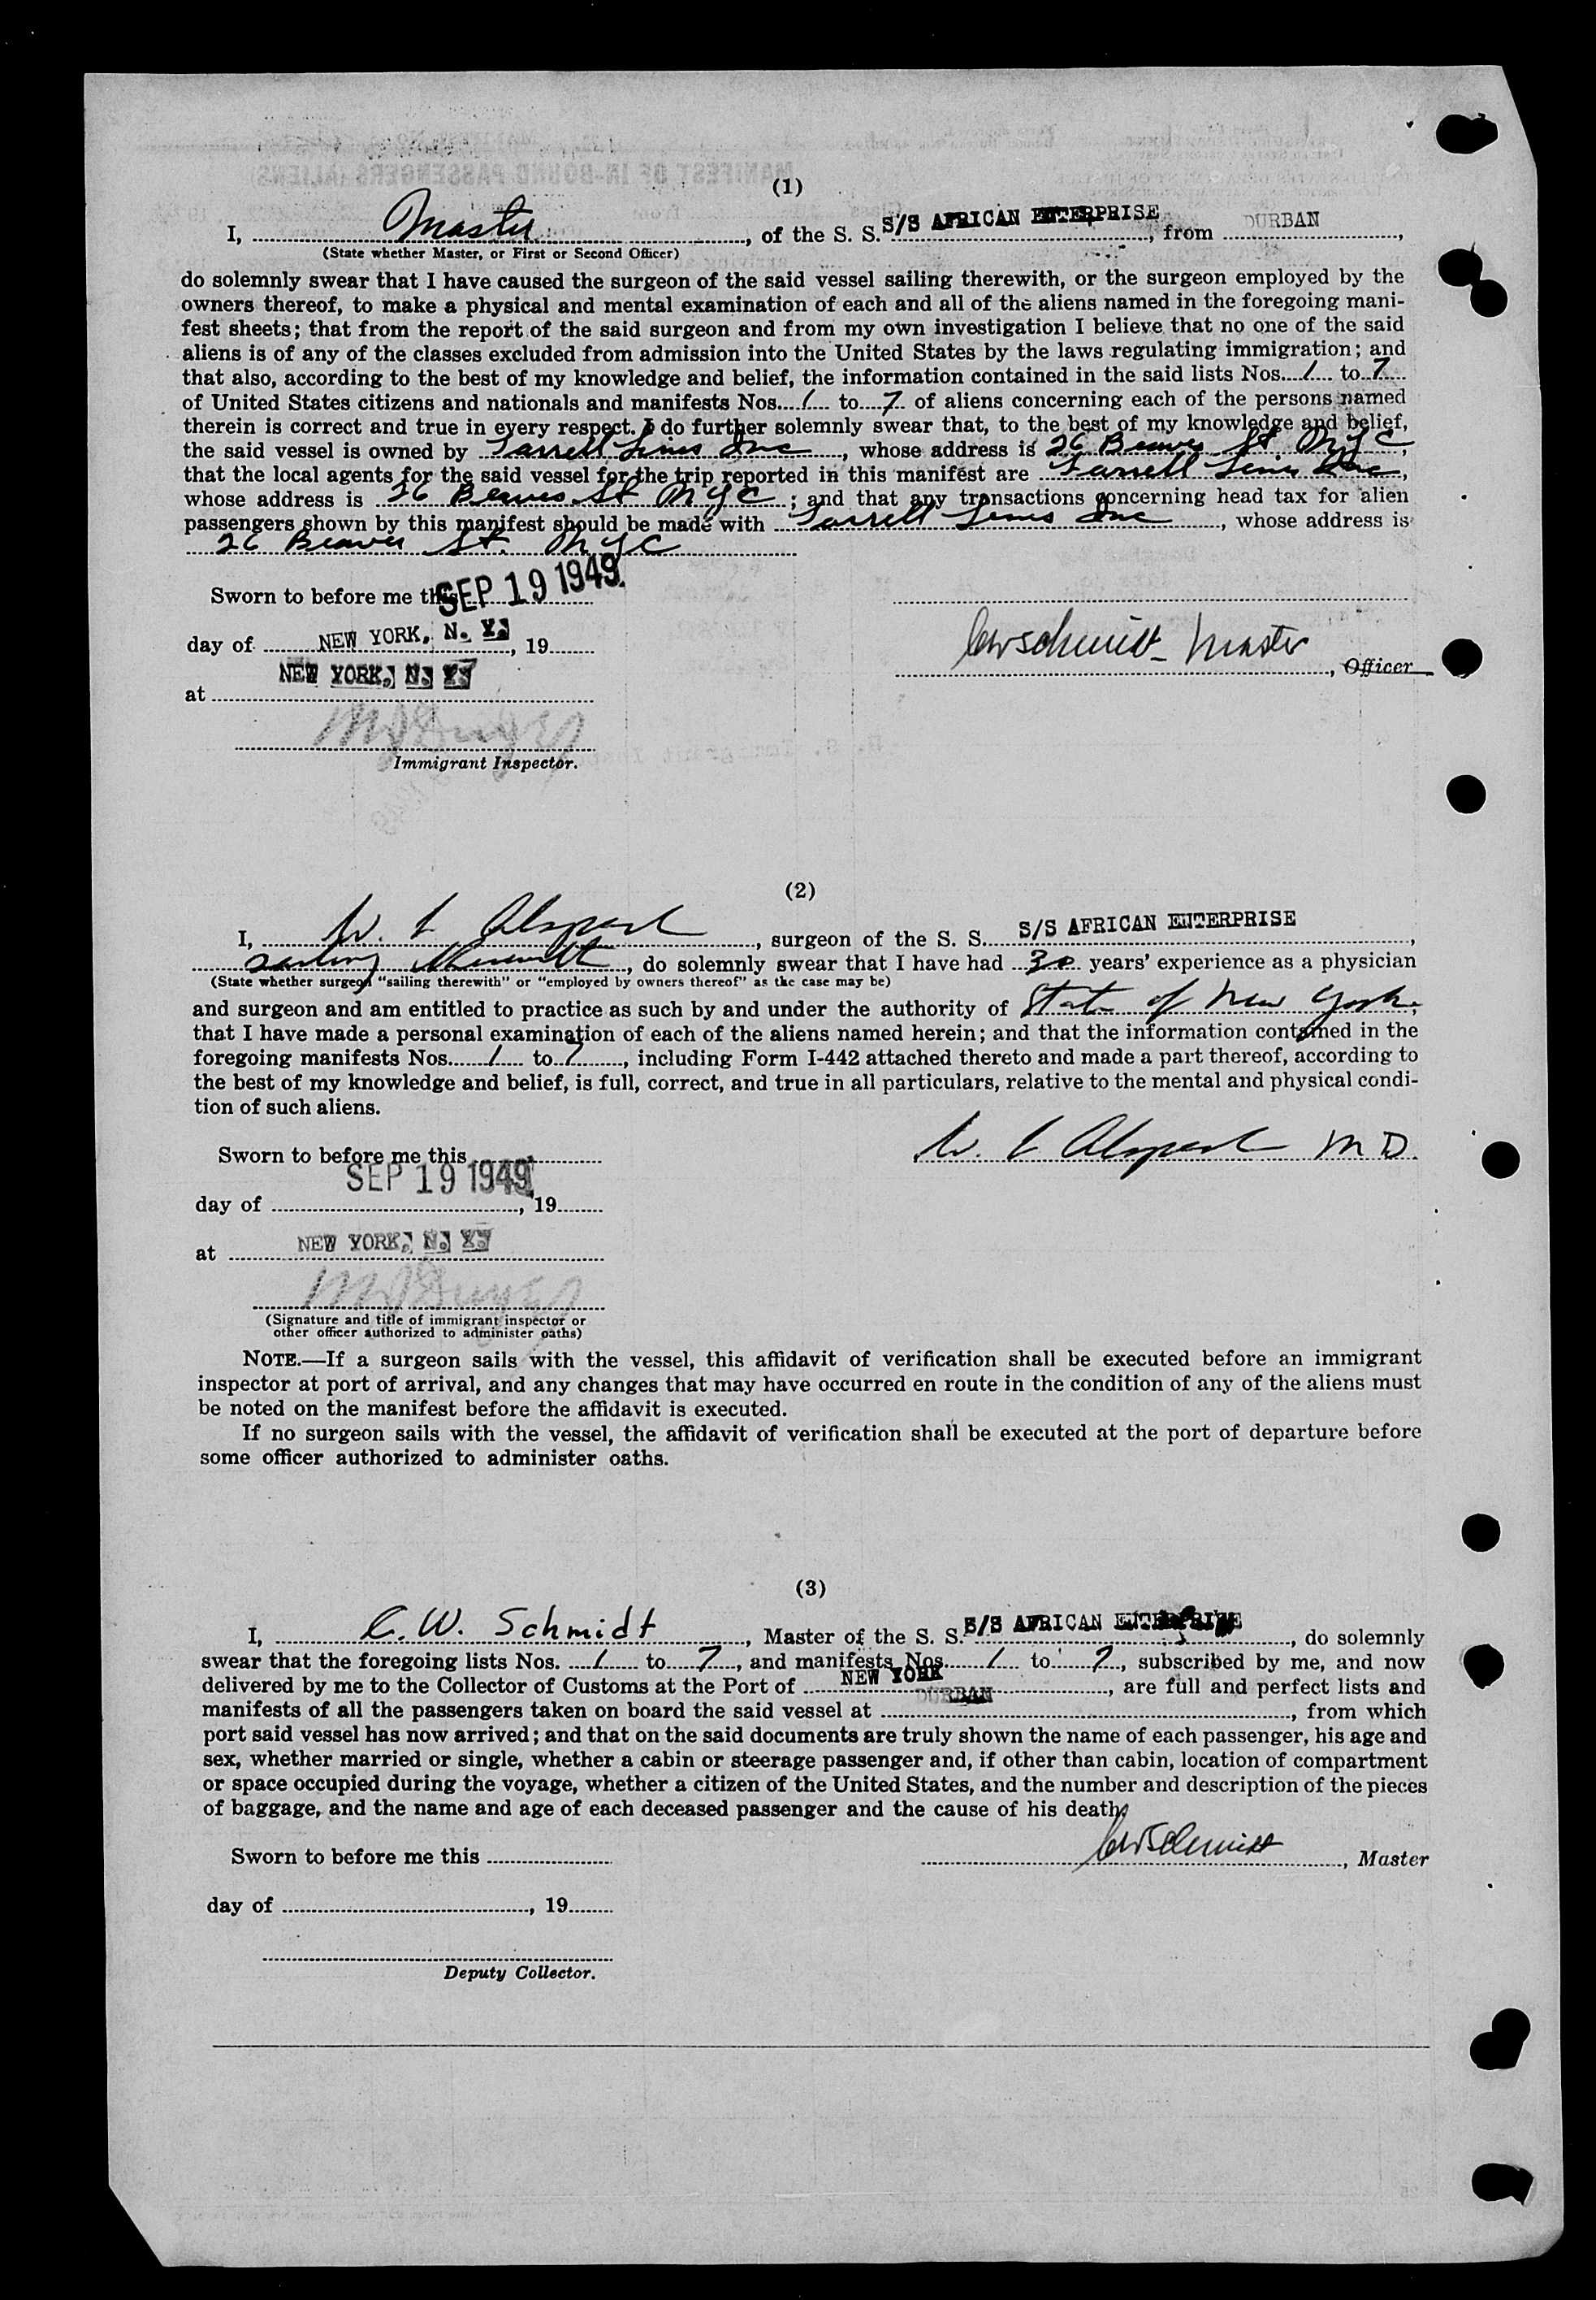 (1)
I, Master, of the S. S. S/S AFRICAN ENTERPRISE, from DURBAN,
(State whether Master, or First or Second Officer)
do solemnly swear that I have caused the surgeon of the said vessel sailing therewith, or the surgeon employed by the
owners thereof, to make a physical and mental examination of each and all of the aliens named in the foregoing mani-
fest sheets; that from the report of the said surgeon and from my own investigation I believe that no one of the said
aliens is of any of the classes excluded from admission into the United States by the laws regulating immigration; and
that also, according to the best of my knowledge and belief, the information contained in the said lists Nos. 1 to 7
of United States citizens and nationals and manifests Nos. 1 to 7 of aliens concerning each of the persons named
therein is correct and true in every respect. I do further solemnly swear that, to the best of my knowledge and belief,
the said vessel is owned by Farrell Lines Inc, whose address is 26 Beaver St NYC,
that the local agents for the said vessel for the trip reported in this manifest are Farrell Lines Inc,
whose address is 26 Beaver St NYC; and that any transactions concerning head tax for alien
passengers shown by this manifest should be made with Farrell Lines Inc, whose address is
26 Beaver St. NYC
Sworn to before me this SEP 19 1949
day of NEW YORK, N. Y., 19
CWSchmidt - Master, Officer
at NEW YORK, N. Y.
Immigrant Inspector.
(2)
I, W. L. Alspach, surgeon of the S. S. S/S AFRICAN ENTERPRISE,
sailing therewith, do solemnly swear that I have had 30 years' experience as a physician
(State whether surgeon "sailing therewith" or "employed by owners thereof" as the case may be)
and surgeon and am entitled to practice as such by and under the authority of State of New York,
that I have made a personal examination of each of the aliens named herein; and that the information contained in the
foregoing manifests Nos. 1 to 7, including Form I-442 attached thereto and made a part thereof, according to
the best of my knowledge and belief, is full, correct, and true in all particulars, relative to the mental and physical condi-
tion of such aliens.
W. L. Alspach M D.
Sworn to before me this
SEP 19 1949
day of , 19
at NEW YORK, N. Y.
(Signature and title of immigrant inspector or
other officer authorized to administer oaths)
NOTE.—If a surgeon sails with the vessel, this affidavit of verification shall be executed before an immigrant
inspector at port of arrival, and any changes that may have occurred en route in the condition of any of the aliens must
be noted on the manifest before the affidavit is executed.
If no surgeon sails with the vessel, the affidavit of verification shall be executed at the port of departure before
some officer authorized to administer oaths.
(3)
I, C. W. Schmidt, Master of the S. S. S/S AFRICAN ENTERPRISE, do solemnly
swear that the foregoing lists Nos. 1 to 7, and manifests Nos. 1 to 7, subscribed by me, and now
delivered by me to the Collector of Customs at the Port of NEW YORK, are full and perfect lists and
manifests of all the passengers taken on board the said vessel at DURBAN, from which
port said vessel has now arrived; and that on the said documents are truly shown the name of each passenger, his age and
sex, whether married or single, whether a cabin or steerage passenger and, if other than cabin, location of compartment
or space occupied during the voyage, whether a citizen of the United States, and the number and description of the pieces
of baggage, and the name and age of each deceased passenger and the cause of his death.
CWSchmidt, Master
Sworn to before me this
day of , 19
Deputy Collector.